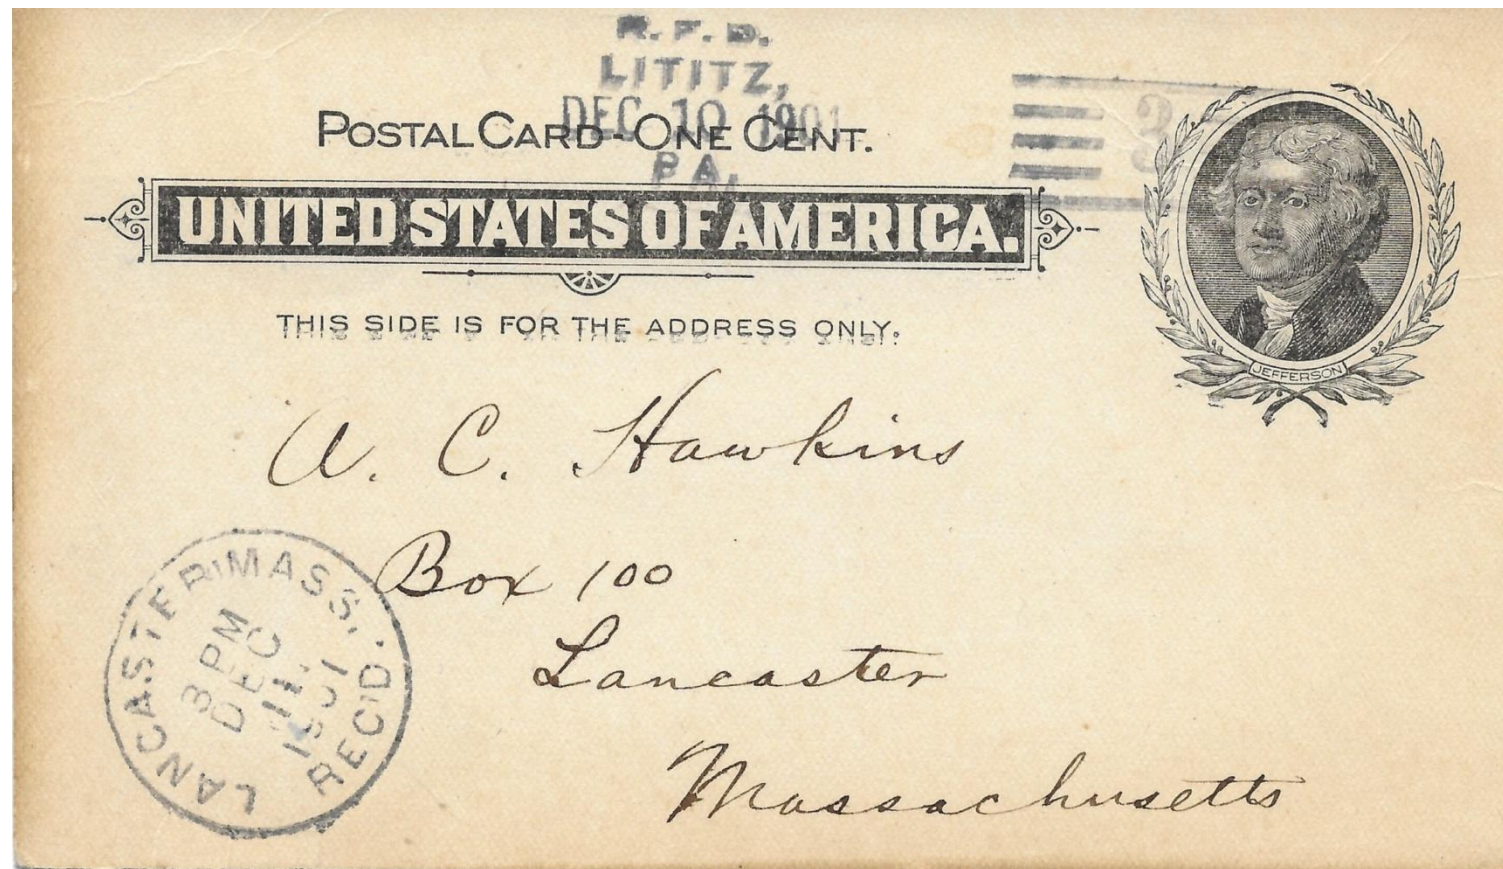 R. F. D.
LITITZ,
DEC 10 1901
PA.
POSTAL CARD - ONE CENT.
UNITED STATES OF AMERICA.
THIS SIDE IS FOR THE ADDRESS ONLY.
JEFFERSON
A. C. Hawkins
Box 100
Lancaster
Massachusetts
LANCASTER, MASS.
8 PM
DEC
11
1901
REC'D.